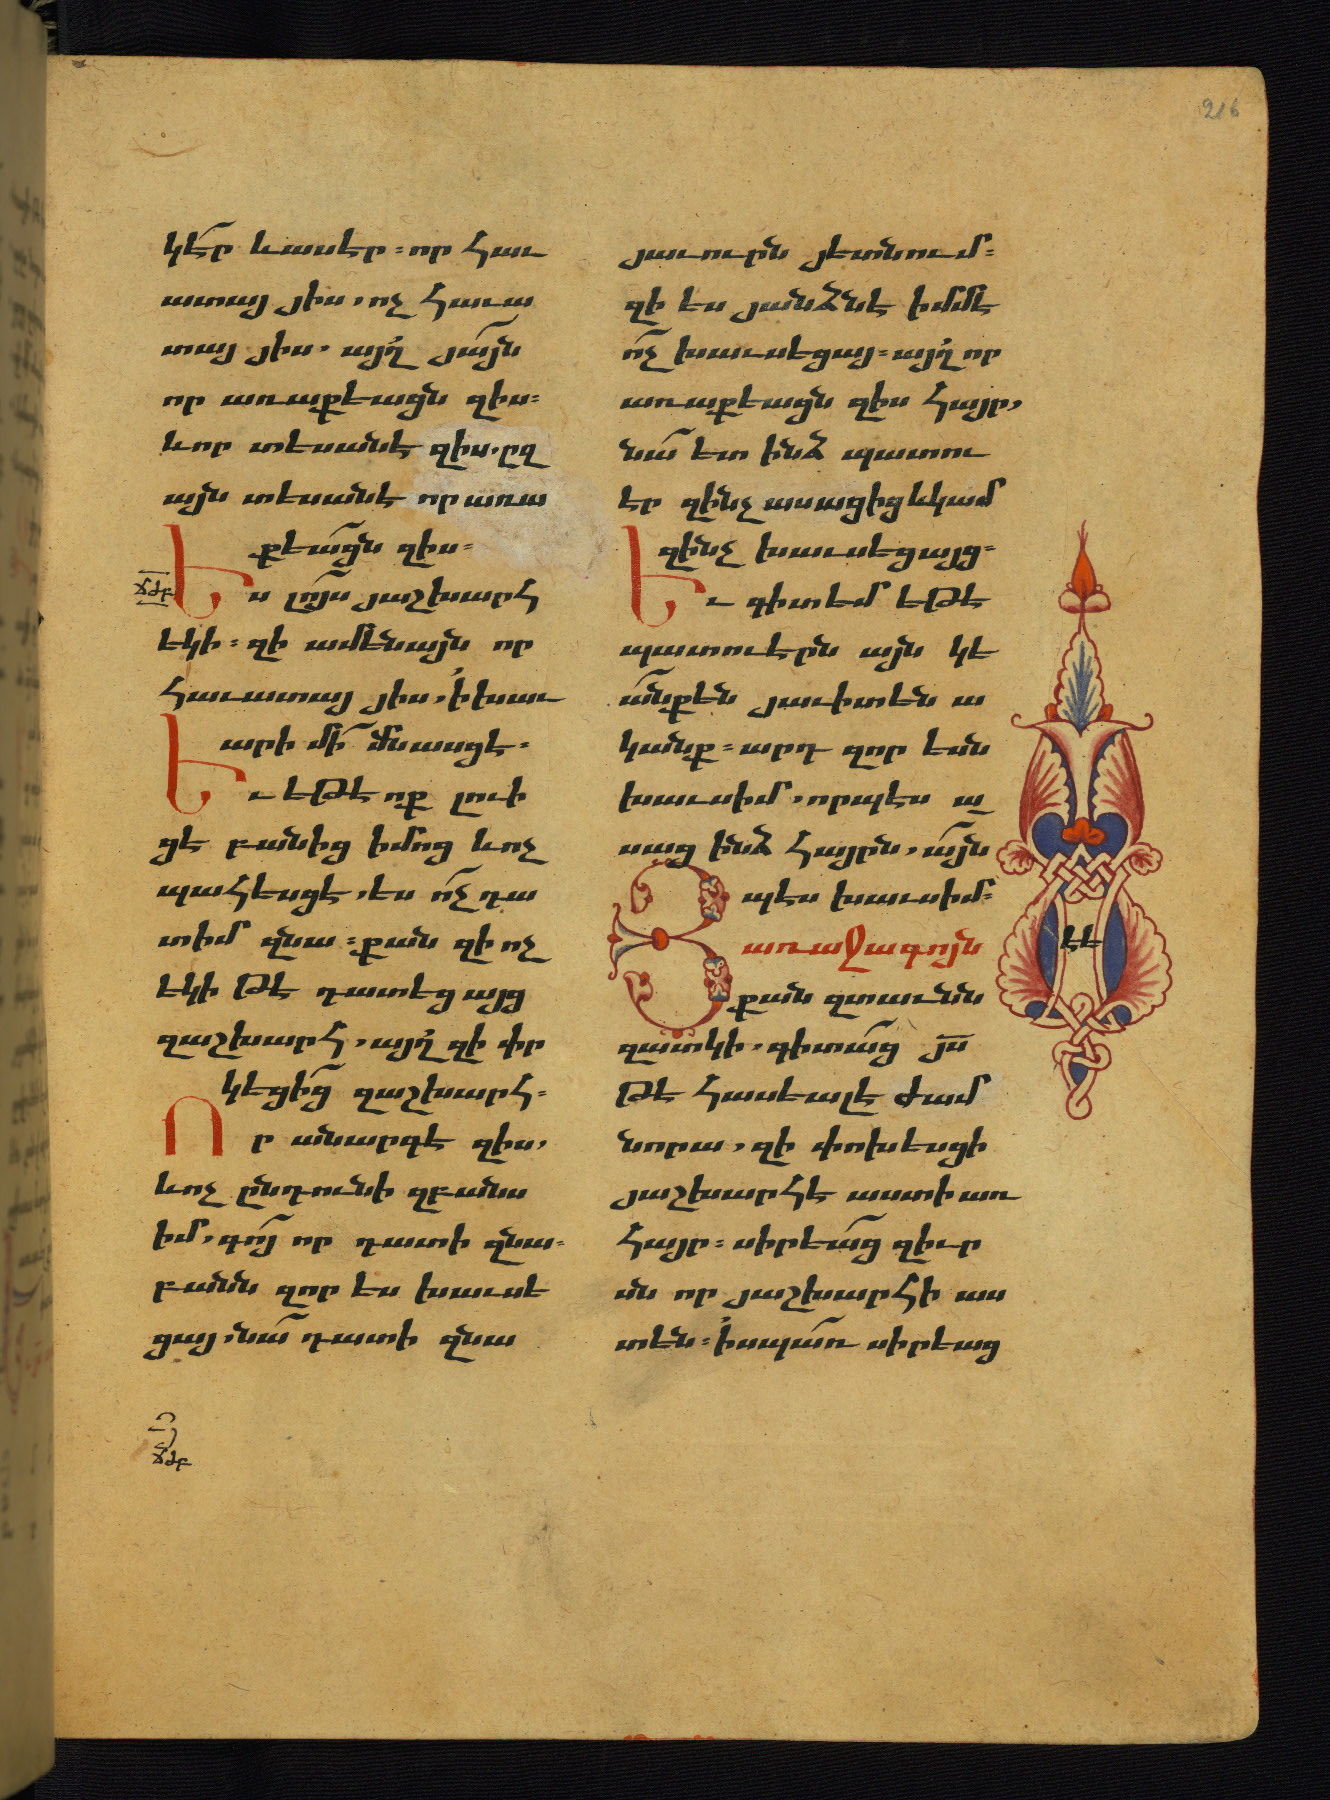 216
կէր և ասէր։ որ հաւ
ատայ յիս, ոչ հաւա
տայ յիս, այղ յայն
որ առաքեացն զիս։
և որ տեսանէ զիս, ըզ
այն տեսանէ որ առա
քեացն զիս։
ճժբ
Ես լոյս յաշխարհ
եկի։ զի ամենայն որ
հաւատայ յիս, ի խաւ
արի մի մնասցէ։
Եւ եթէ ոք լուի
ցէ բանից իմոց և ոչ
պահեսցէ, ես ոչ դա
տիմ զնա։ քան զի ոչ
եկի թէ դատեցայց
զաշխարհ, այղ զի փր
կեցից զաշխարհ։
Որ անարգէ զիս,
և ոչ ընդունի զբանս
իմ, գոյ որ դատի զնա։
բանն զոր ես խաւսե
ցայ, նա դատի զնա
ճժբ
յաւուրն յետնում։
զի ես յանձնէ իմմէ
ոչ խաւսեցայ։ այղ որ
առաքեացն զիս հայր,
նա ետ ինձ պատու
էր զինչ ասացից և կամ
զինչ խաւսեցայց։
Եւ գիտեմ եթէ
պատուէրն այն կե
անքէն յաւիտէն ա
կանք։ արդ զոր եան
խաւսիմ, որպէս ա
սաց ինձ հայրն, այն
պէս խաւսիմ։
Յառաջագոյն
քան զտաւնն
զատկի, գիտաց յս
թէ հասեալէ ժամ
նորա, զի փոխեսցի
յաշխարհէ աստի առ
հայր։ սիրեաց զիւր
սն որ յաշխարհի աս
տէն։ ի սպառ սիրեաց
ԷԷ